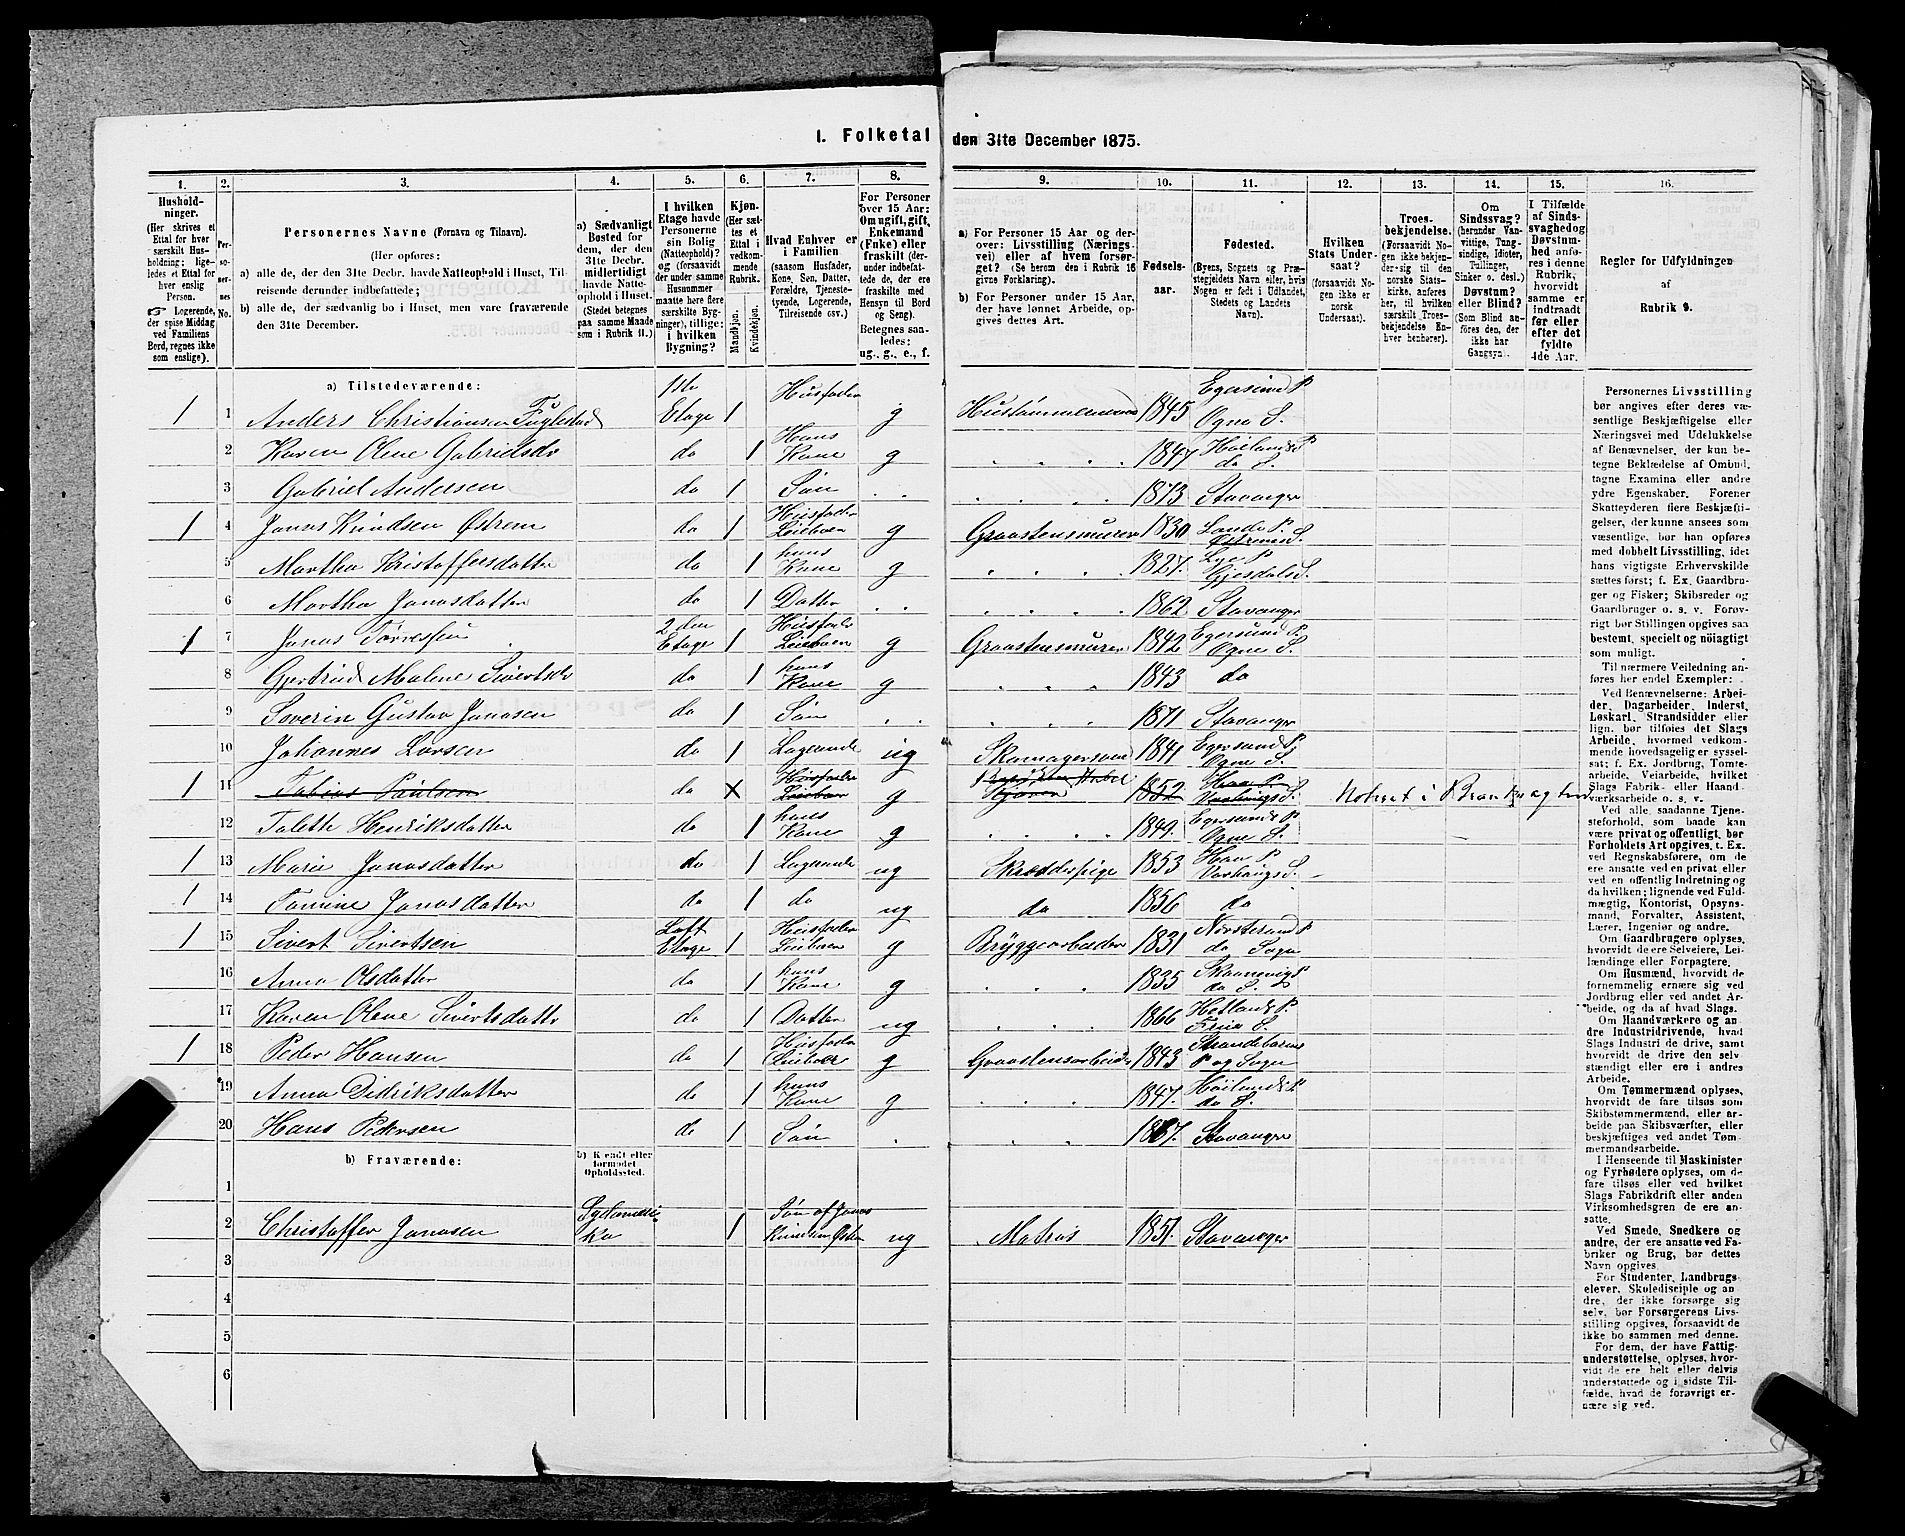 1. Folketal den 31te December 1875.
1. 2. 3. 4. 5. 6. 7. 8. 9. 10. 11. 12. 13. 14. 15. 16.
Hushold-
ninger.
(Her skrives et
Ettal for hver
særskilt Hus-
holdning; lige-
ledes et Ettal for
hver enslig
Person.
☞ Logerende,
der spise Middag
ved Familiens
Bord, regnes ikke
som enslige).
Per-
so-
ner-
nes
No.
Personernes Navne (Fornavn og Tilnavn).
(Her opføres:
a) alle de, der den 31te Decbr. havde Natteophold i Huset, Til-
reisende derunder indbefattede;
b) alle de, der sædvanlig bo i Huset, men vare fraværende
den 31te December.
a) Sædvanligt
Bosted for
dem, der den
31te Decbr.
midlertidigt
havde Natte-
ophold i Huset.
(Stedet betegnes
paa samme Maade
som i Rubrik 11.)
I hvilken
Etage havde
Personerne
sin Bolig
(Natteophold)?
og (forsaavidt
under samme
Husnummer
maatte høre flere
særskilte Byg-
ninger), tillige:
i hvilken
Bygning?
Kjøn.
(Her sæt-
tes et
Ettal i
vedkom-
mende
Rubrik.
Mandkjøn.
Kvindekjøn.
Hvad Enhver er
i Familien
(saasom Husfader,
Kone, Søn, Datter,
Forældre, Tjeneste-
tyende, Logerende,
Tilreisende osv.)
For Personer
over 15 Aar:
Om ugift, gift,
Enkemand
(Enke) eller
fraskilt (der-
under indbefat-
tede de, der ere
fraskilte med
Hensyn til Bord
og Seng).
Betegnes saa-
ledes:
ug., g., e., f.
a) For Personer 15 Aar og der-
over: Livsstilling (Nærings-
vei) eller af hvem forsør-
get? (Se herom den i Rubrik 16
givne Forklaring).
b) For Personer under 15 Aar,
der have lønnet Arbeide, op-
gives dettes Art.
Fødsels-
aar.
Fødested.
(Byens, Sognets og Præ-
stegjeldets Navn eller, hvis
Nogen er født i Udlandet,
Stedets og Landets
Navn).
Hvilken
Stats Under-
saat?
(forsaavidt No-
gen ikke er
norsk
Undersaat).
Troes-
bekjendelse.
(Forsaavidt No-
gen ikke bekjen-
der sig til den
norske Stats-
kirke, anføres
her, til hvilken
særskilt Troes-
bekjendelse En-
hver henhører).
Om
Sindssvag?
(herunder Van-
vittige, Tung-
sindige, Idioter,
Tullinger,
Sinker o. desl.)
Døvstum?
eller Blind?
(Som Blind an-
føres den, der
ikke har
Gangsyn).
I Tilfælde
af Sinds-
svaghed og
Døvstum-
hed anfø-
res i denne
Rubrik,
hvorvidt
samme er
indtraadt
før eller
efter det
fyldte
4de Aar.
Regler for Udfyldningen
af
Rubrik 9.
a) Tilstedeværende:
1 1 Anders Christiansen Fuglestad 1ste Etage 1 Husfader g Hustømmermand 1845 Egersund P. Ogne S.
2 Karen Olene Gabrielsdr do 1 Hans Kone g 1847 Høilands P. do S.
3 Gabriel Andersen do 1 Søn 1873 Stavanger
1 4 Jonas Knudsen Østrem do 1 Husfader Leieboer g Graastensmurer 1830 Lunde P. S.
5 Martha Kristoffersdatter do 1 hans Kone g 1827. Lye P. Gjesdals S.
6 Martha Jonasdatter do 1 Datter 1862 Stavanger
1 7 Jonas Torressen 2den Etage 1 Husfader Leieboer g Graastensmurer 1842 Egersund P. Ogne S.
8 Gjertrud Malene Sivertsdr do 1 hans Kone g 1843 do
9 Severin Gustav Jonasen do 1 Søn 1871 Stavanger
10 Johannes Larsen do 1 Logerende ug Skomagersven 1841 Egersund P. Ogne S.
1 11 Tobias Paulsen do Husfader Leieboer g 1852 Haa P. Varhougs S. Noteret i
12 Talette Henriksdatter do 1 hans Kone g 1849. Egersunds P. Ogne S.
1 13 Marie Jonasdatter do 1 Logerende ug Skrædderpige 1853 Haa P. Varhougs S.
1 14 Tomine Jonasdatter do 1 do ug do 1856 do
1 15 Sivert Sivertsen Loft Etage 1 Husfader Leieboer g Bryggearbeider 1831 P. do Sogn
16 Anna Olsdatter do 1 hans Kone g 1835 Skaanevigs P. do S.
17 Karen Olene Sivertsdattr do 1 Datter ug 1866 Hetlands P. Frue S.
1 18 Peder Hansen do 1 Husfader Leieboer g Graastensarbeider 1843 Strandebarms P. og Sogn
19 Anna Didriksdatter do 1 hans Kone g 1847. Høilands P. do S.
20 Hans Pedersen do 1 Søn 1867. Stavanger
b) Fraværende:
b) Kjendt eller
formodet
Opholdssted.
1
2 Christoffer Jonasen Sydamerika 1 Søn af Jonas Knudsen Østrem ug Matros 1851. Stavanger
3
4
5
6
Personernes Livsstilling
bør angives efter deres væ-
sentlige Beskjæftigelse eller
Næringsvei med Udelukkelse
af Benævnelser, der kun be-
tegne Beklædelse af Ombud,
tagne Examina eller andre
ydre Egenskaber. Forener
Skatteyderen flere Beskjæfti-
gelser, der kunne ansees som
væsentlige, bør han opføres
med dobbelt Livsstilling, idet
hans vigtigste Erhvervskilde
sættes først; f. Ex. Gaardbru-
ger og Fisker; Skibsreder og
Gaardbruger o. s. v. Forøv-
rigt bør Stillingen opgives saa
bestemt, specielt og nøiagtigt
som muligt.
Til nærmere Veiledning an-
føres her endel Exempler:
Ved Benævnelserne: Arbei-
der, Dagarbeider, Inderst,
Løskarl, Strandsidder eller
lign. bør tilføies det Slags
Arbeide, hvormed vedkom-
mende hovedsagelig er syssel-
sat; f. Ex. Jordbrug, Tomte-
arbeide, Veiarbeide, hvilket
Slags Fabrik- eller Haand-
værksarbeide o. s. v.
Ved alle saadanne Tjene-
steforhold, som baade kan
være privat og offentligt, bør
Forholdets Art opgives, t. Ex.
ved Regnskabsførere, om de
ere ansatte ved en privat eller
ved en offentlig Indretning og
da hvilken; lignende ved Fuld-
mægtig, Kontorist, Opsyns-
mand, Forvalter, Assistent,
Lærer, Ingeniør og andre.
Om Gaardbrugere oplyses,
hvorvidt de ere Selveiere, Lei-
lændinge eller Forpagtere.
Om Husmænd, hvorvidt de
fornemmelig ernære sig ved
Jordbrug eller ved andet Ar-
beide, og da af hvad Slags.
Om Haandværkere og an-
dre Industridrivende, hvad
Slags Industri de drive, samt
hvorvidt de drive den selv-
stændigt eller ere i andres
Arbeide.
Om Tømmermænd oplyses,
hvorvidt de fare tilsøs som
Skibstømmermænd, eller ar-
beide paa Skibsværfter, eller
beskjæftiges ved andet Tøm-
mermandsarbeide.
I Henseende til Maskinister
og Fyrbødere oplyses, om de
fare tilsøs eller ved hvilket
Slags Fabrikdrift eller anden
Virksomhedsgren de ere an-
satte.
Ved Smede, Snedkere og
andre, der ere ansatte ved Fa-
briker og Brug, bør dettes
Navn opgives.
For Studenter, Landbrugs-
elever, Skoledisciple og an-
dre, der ikke forsørge sig
selv, bør Forsørgerens Livs-
stilling opgives, forsaavidt de
ikke bo sammen med denne.
For dem, der have Fattig-
understøttelse, oplyses, hvor-
vidt de ere helt eller delvis
understøttede og i sidste Til-
fælde, hvad de forøvrigt er-
nære sig ved.